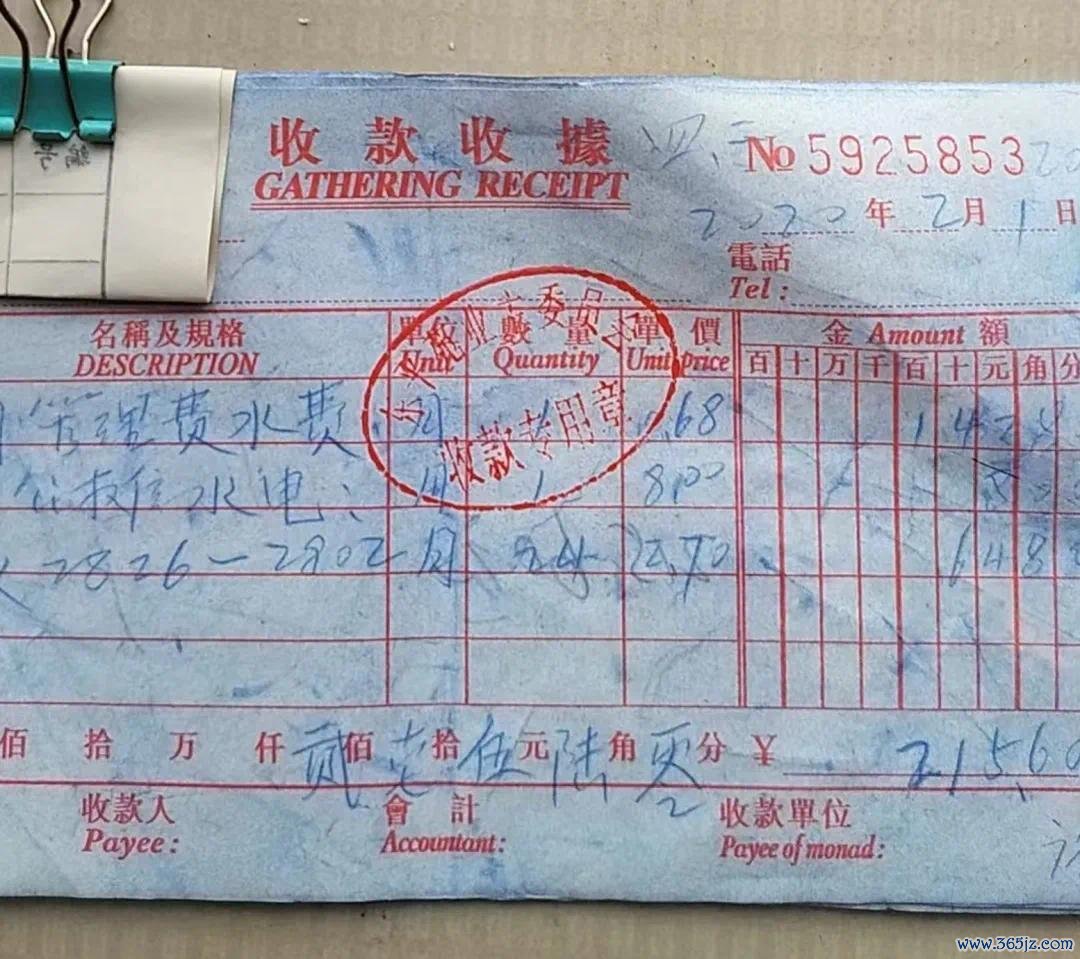 收款收據
GATHERING RECEIPT
No 5925853
2020年2月1日
電話
Tel:
名稱及規格 數量 單價 金 Amount 額
DESCRIPTION Unit Quantity Unit price 百十万千百十元角分
委员
收款专用章
管理费水费 月 1 .68
水电 月 1 8.00
2826-2802 月 24 2.70 648
佰 拾 万 仟 贰佰壹拾伍元陆角零分 ¥ 215.60
收款人 會計 收款單位
Payee: Accountant: Payee of monad:
www.365jz.com